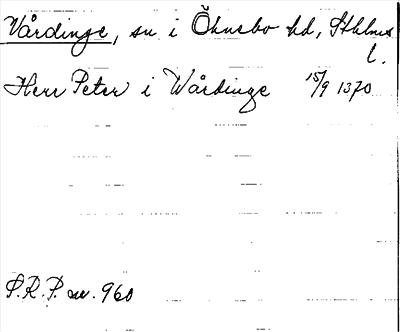 Vårdinge, sn i Öknebo hd, Sthlms
l.
Herr Peter i Wårdinge 15/9 1370
S.R.P. nr. 960